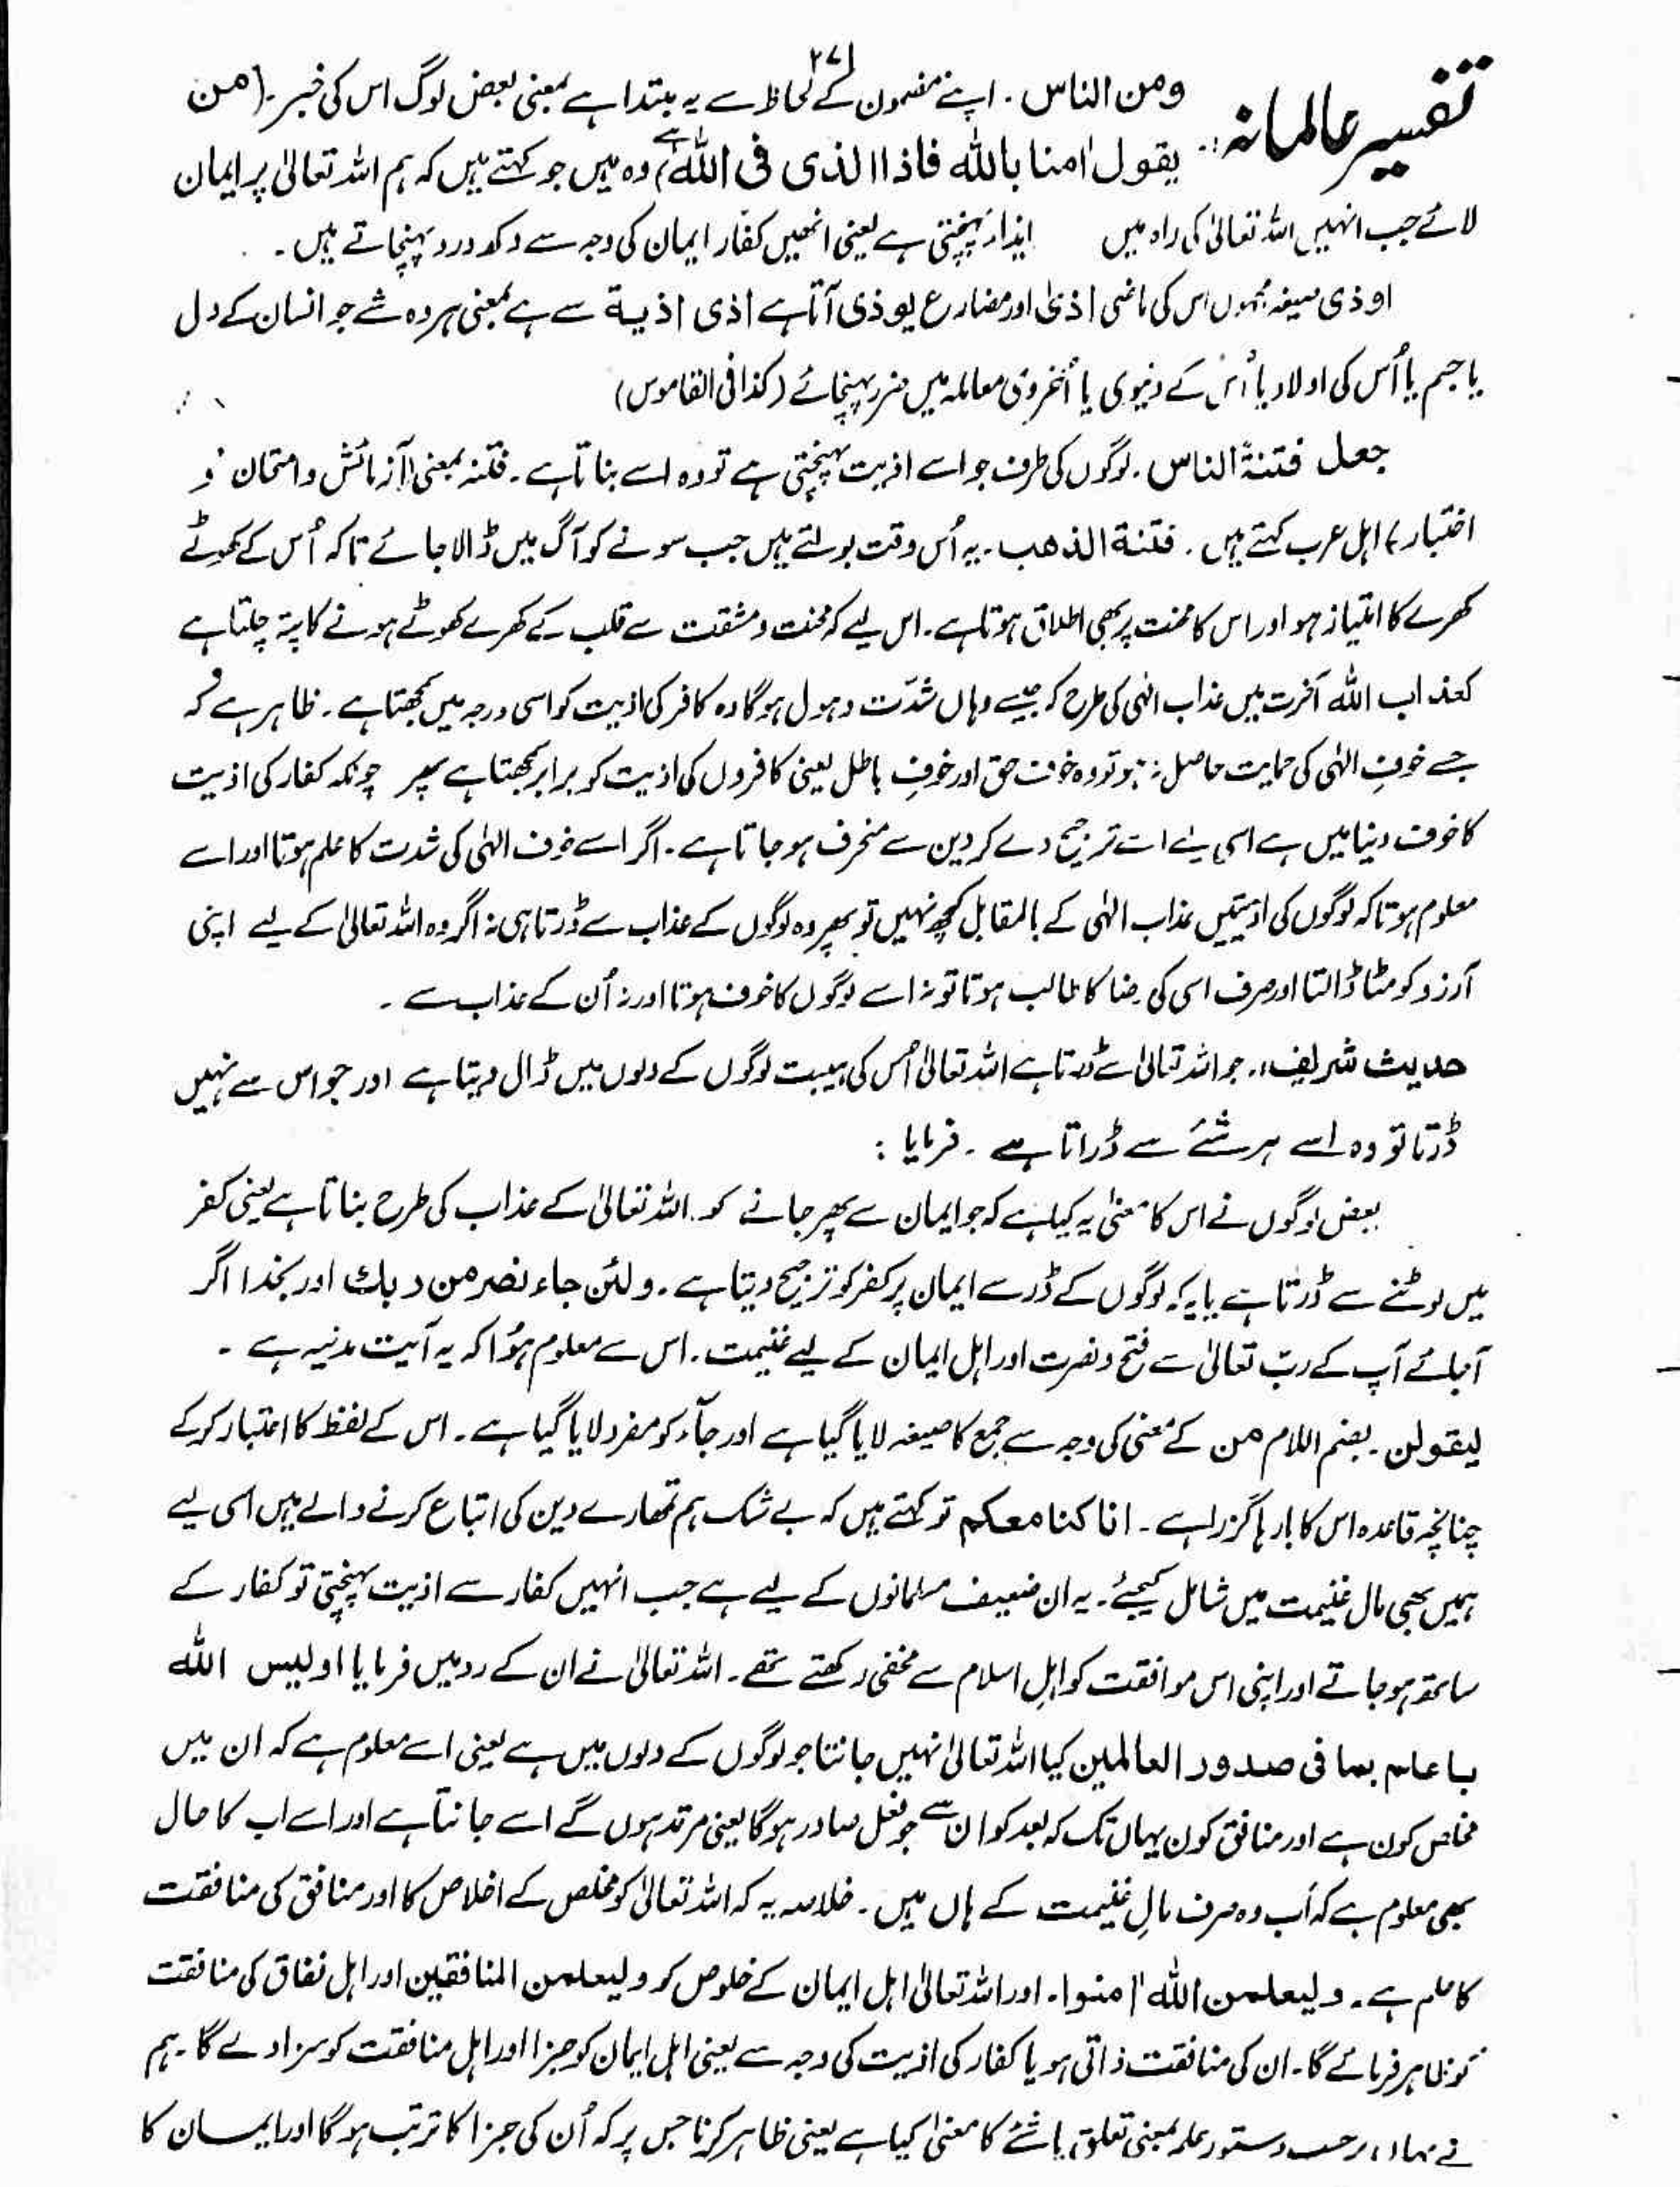 ۲۷۱
تفسیر عالمانہ:۔ ومن الناس ۔ اپنے مضمون کے لحاظ سے یہ مبتدا ہے بمعنی بعض لوگ اس کی خبر ۔ (من
یقول اٰمنا باللہ فاذا الذی فی اللہ) وہ ہیں جو کہتے ہیں کہ ہم اللہ تعالیٰ پر ایمان
لائے جب انہیں اللہ تعالیٰ کی راہ میں ایذاء پہنچتی ہے یعنی انھیں کفار ایمان کی وجہ سے دکھ درد پہنچاتے ہیں ۔
اوذی صیغہ مجہول اس کی ماضی اذیٰ اور مضارع یوذی آتا ہے اذی اذیۃ سے ہے بمعنی ہر وہ شے جو انسان کے دل
یا جسم یا اُس کی اولاد یا اُس کے دنیوی یا اُخروی معاملہ میں ضرر پہنچائے (کذا فی القاموس)
جعل فتنۃ الناس ۔ لوگوں کی طرف جو اسے اذیت پہنچتی ہے تو وہ اسے بناتا ہے ۔ فتنہ بمعنی آزمائش و امتحان و
اختبار) اہل عرب کہتے ہیں ۔ فتنۃ الذھب ۔ یہ اُس وقت بولتے ہیں جب سونے کو آگ میں ڈالا جائے تاکہ اُس کے کھوٹے
کھرے کا امتیاز ہو اور اس کا محنت پر بھی اطلاق ہوتا ہے ۔ اس لیے کہ محنت و مشقت سے قلب کے کھرے کھوٹے ہونے کا پتہ چلتا ہے
کعذاب اللہ آخرت میں عذاب الٰہی کی طرح کہ جیسے وہاں شدّت و ہول ہوگا وہ کافر کی اذیت کو اسی درجہ میں سمجھتا ہے ۔ ظاہر ہے کہ
جسے خوفِ الٰہی کی حمایت حاصل نہ ہو تو وہ خوف حق اور خوفِ باطل یعنی کافروں کی اذیت کو برابر سمجھتا ہے پھر چونکہ کفار کی اذیت
کا خوف دنیا میں ہے اسی لیے اسے ترجیح دے کر دین سے منحرف ہو جاتا ہے ۔ اگر اسے خوف الٰہی کی شدت کا علم ہوتا اور اسے
معلوم ہوتا کہ لوگوں کی اذیتیں عذاب الٰہی کے بالمقابل کچھ نہیں تو پھر وہ لوگوں کے عذاب سے ڈرتا ہی نہ اگر وہ اللہ تعالیٰ کے لیے اپنی
آرزو کو مٹا ڈالتا اور صرف اسی کی رضا کا طالب ہوتا تو نہ اسے لوگوں کا خوف ہوتا اور نہ اُن کے عذاب سے ۔
حدیث شریف :۔ جو اللہ تعالیٰ سے ڈرتا ہے اللہ تعالیٰ اُس کی ہیبت لوگوں کے دلوں میں ڈال دیتا ہے اور جو اس سے نہیں
ڈرتا تو وہ اسے ہر شئے سے ڈراتا ہے ۔ فرمایا :
بعض لوگوں نے اس کا معنیٰ یہ کیا ہے کہ جو ایمان سے پھر جانے کو اللہ تعالیٰ کے عذاب کی طرح بناتا ہے یعنی کفر
میں لوٹنے سے ڈرتا ہے یا یہ کہ لوگوں کے ڈر سے ایمان پر کفر کو ترجیح دیتا ہے ۔ ولئن جاء نصر من ربك اور بخدا اگر
آجائے آپ کے ربّ تعالیٰ سے فتح و نصرت اور اہل ایمان کے لیے غنیمت ۔ اس سے معلوم ہُوا کہ یہ آیت مدنیہ ہے ۔
لیقولن ۔ بضم اللام من کے معنی کی وجہ سے جمع کا صیغہ لایا گیا ہے اور جآء کو مفرد لایا گیا ہے ۔ اس کے لفظ کا اعتبار کرکے
چنانچہ قاعدہ اس کا بارہا گزرا ہے ۔ انا کنا معکم تو کہتے ہیں کہ بے شک ہم تمھارے دین کی اتباع کرنے والے ہیں اسی لیے
ہمیں بھی مال غنیمت میں شامل کیجئے ۔ یہ ان ضعیف مسلمانوں کے لیے ہے جب انہیں کفار سے اذیت پہنچتی تو کفار کے
ساتھ ہو جاتے اور اپنی اس موافقت کو اہل اسلام سے مخفی رکھتے تھے ۔ اللہ تعالیٰ نے ان کے رد میں فرمایا اولیس اللہ
باعلم بما فی صدور العالمین کیا اللہ تعالیٰ نہیں جانتا جو لوگوں کے دلوں میں ہے یعنی اسے معلوم ہے کہ ان میں
مخلص کون ہے اور منافق کون یہاں تک کہ بعد کو ان سے جو فعل صادر ہوگا یعنی مرتد ہوں گے اسے جانتا ہے اور اسے اب کا حال
بھی معلوم ہے کہ اب وہ صرف مالِ غنیمت کے ہاں ہیں ۔ خلاصہ یہ کہ اللہ تعالیٰ کو مخلص کے اخلاص کا اور منافق کی منافقت
کا علم ہے ۔ ولیعلمن اللہ اٰمنوا ۔ اور اللہ تعالیٰ اہل ایمان کے خلوص کو ولیعلمن المنافقین اور اہل نفاق کی منافقت
کو ظاہر فرمائے گا ۔ ان کی منافقت ذاتی ہو یا کفار کی اذیت کی وجہ سے یعنی اہل ایمان کو جزا اور اہل منافقت کو سزا دے گا ۔ ہم
نے یہاں پر حسب دستور علم بمعنی تعلق باشئے کا معنیٰ کیا ہے یعنی ظاہر کرنا جس پر کہ اُن کی جزا کا ترتب ہوگا اور ایمان کا